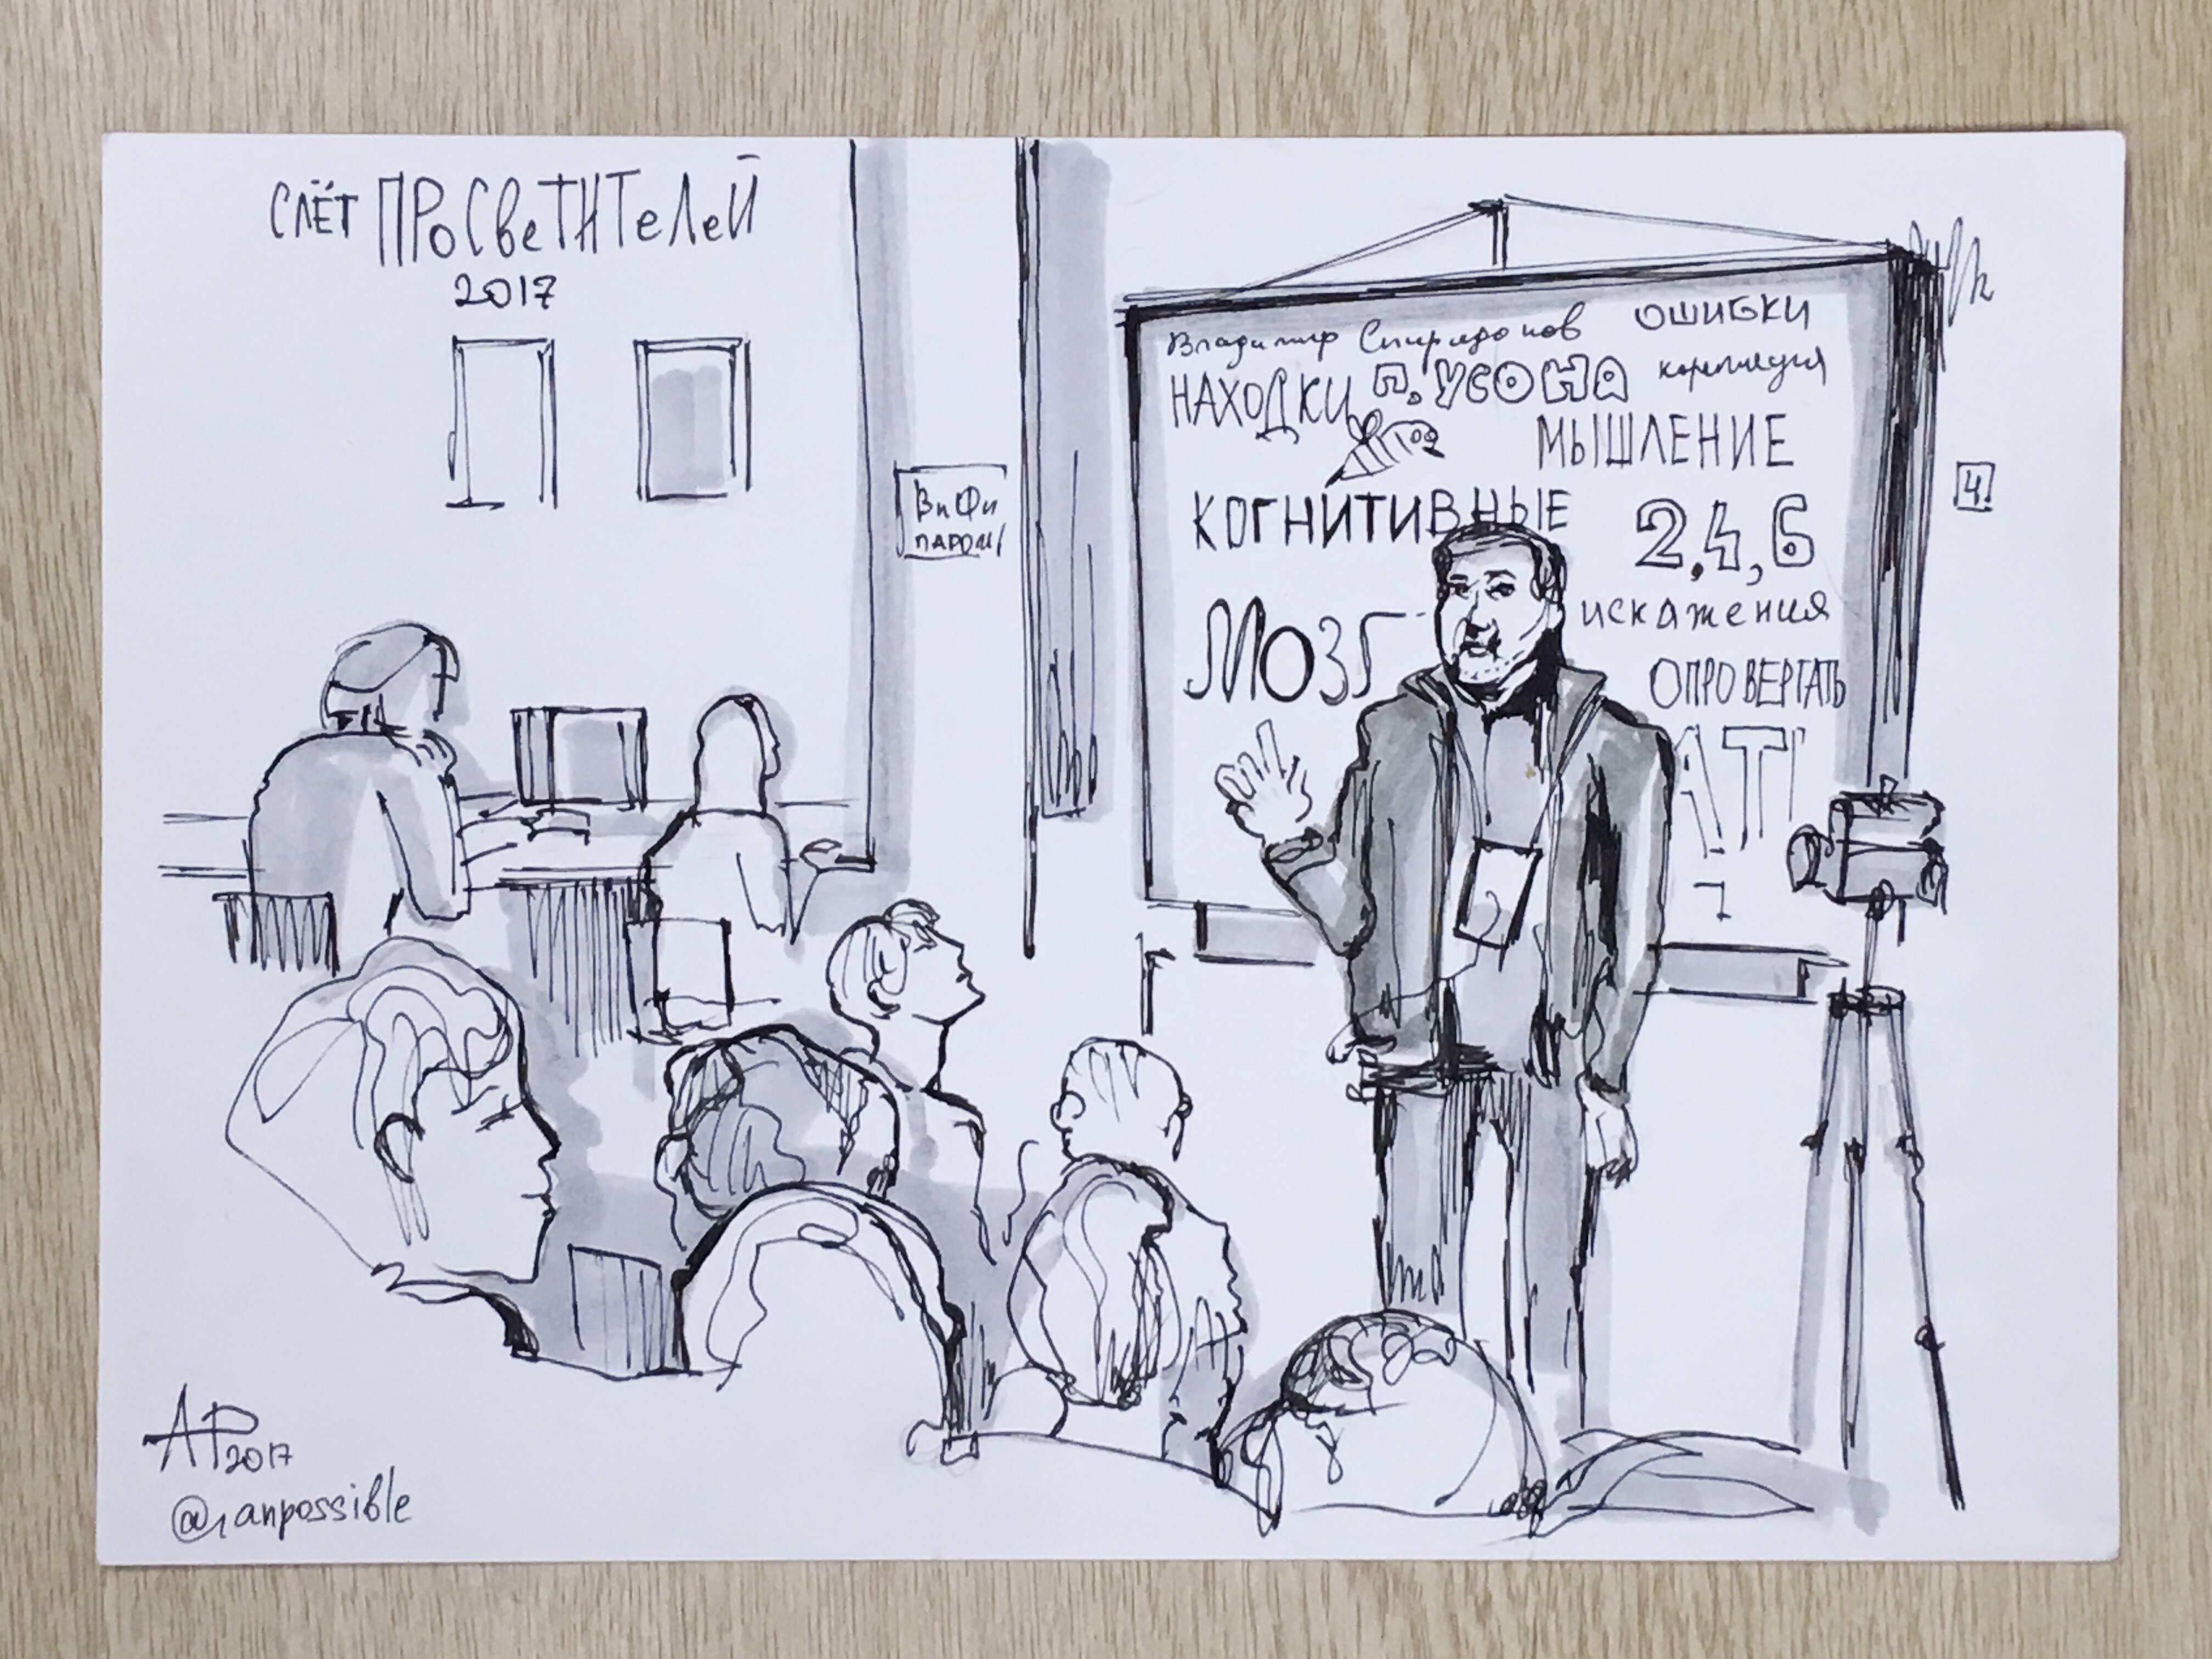 СЛЁТ ПРОСВеТИТеЛеЙ
2017
ВиФи
ПАРОЛЬ
Владимир Спиридонов
ОШИБКИ
НАХОДКИ П. УСОНА
корреляция
МЫШЛЕНИЕ
КОГНИТИВНЫЕ
2,4,6
МОЗГ
искажения
ОПРОВЕРГАТЬ
АТ
Ч
АР 2017
@anpossible